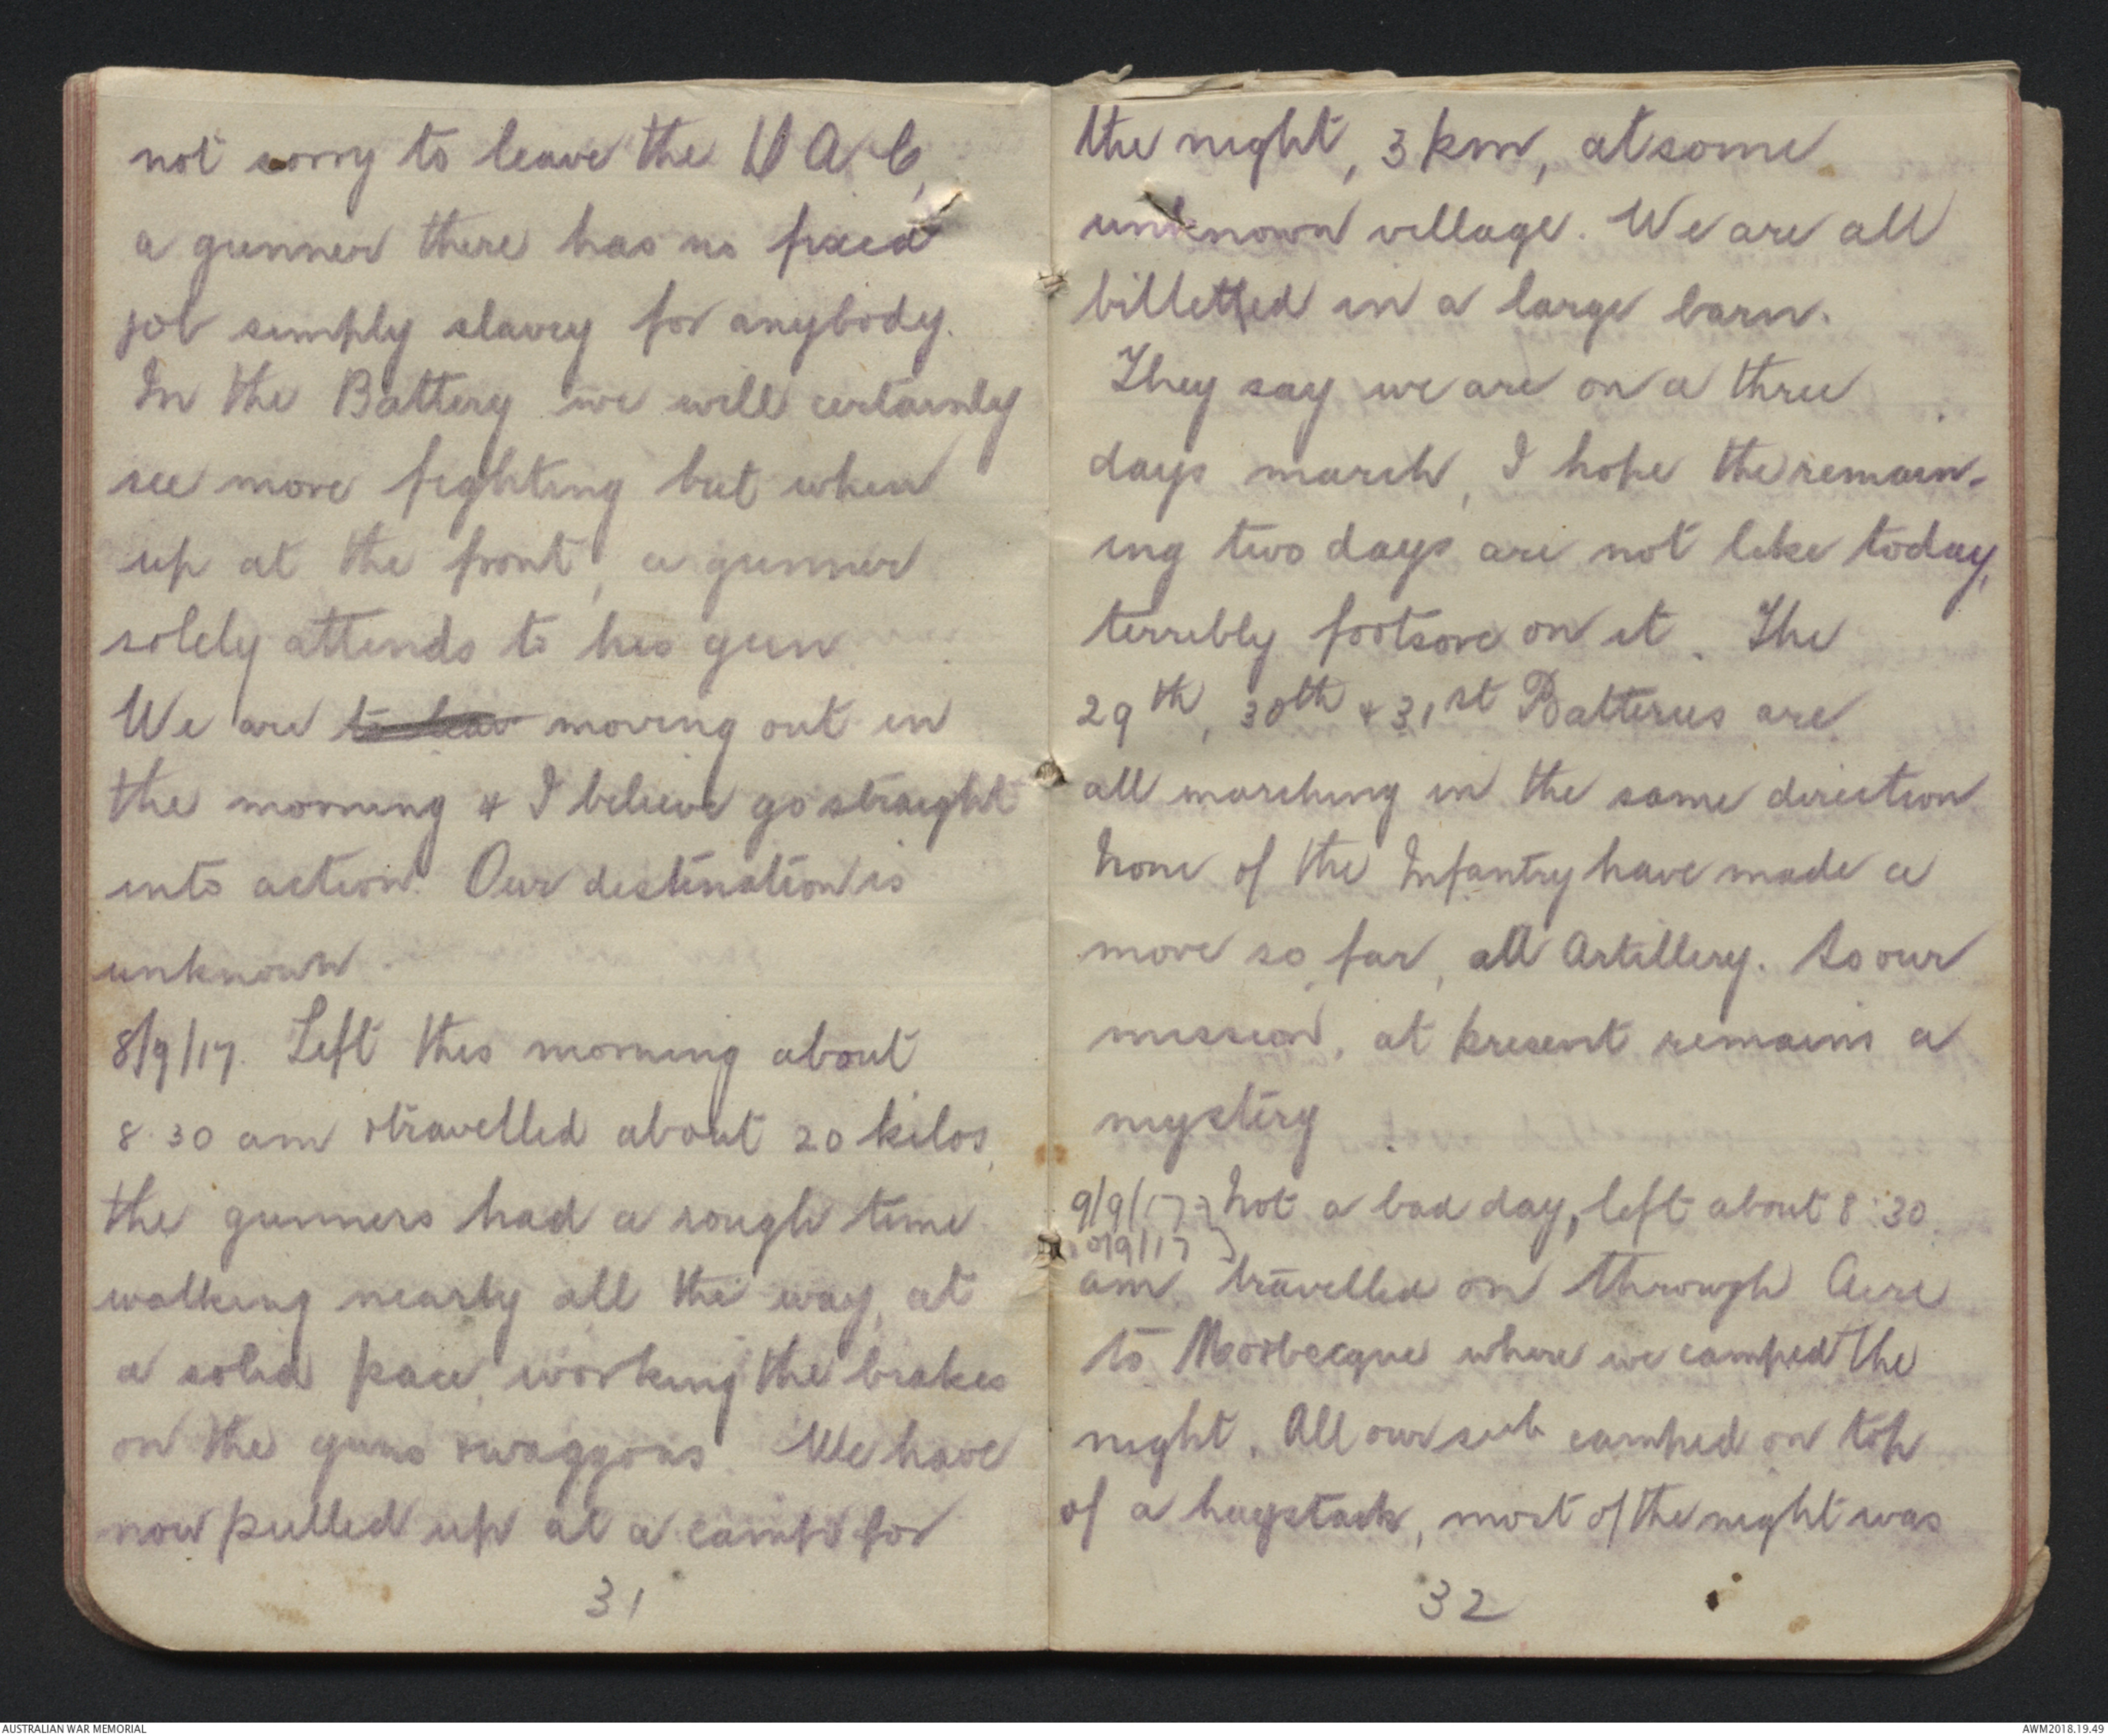 not sorry to leave the D A C,
a gunner there has no fixed
job simply slavey for anybody.
In the Battery we will certainly
see more fighting but when
up at the front, a gunner
solely attends to his gun
We are moving out in
the morning & I believe go straight
into action. Our destination is
unknown.
8/9/17. Left this morning about
8.30 am & travelled about 20 kilos,
the gunners had a rough time
walking nearly all the way, at
a solid pace, working the brakes
on the guns & waggons. We have
now pulled up at a camp for
31
the night, 3 km, at some
unknown village. We are all
billetted in a large barn.
They say we are on a three
days march, I hope the remain-
ing two days are not like today,
terribly footsore on it. The
29th, 30th & 31st Batteries are
all marching in the same direction
None of the Infantry have made a
move so far, all Artillery. So our
mission, at present remains a
mystery
9/9/17 } Not a bad day, left about 8:30
10/9/17 }
am, travelled on through Aire
to Morbecque where we camped the
night. All our sub camped on top
of a haystack, most of the night was
32
AUSTRALIAN WAR MEMORIAL
AWM2018.19.49